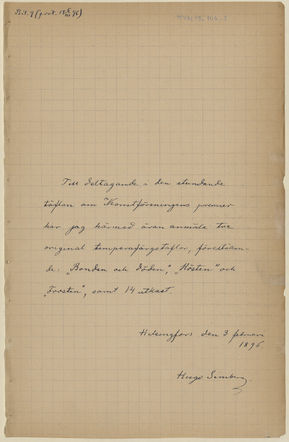 Till deltagande i den stundande
täflan om Konstföreningens premier
har jag härmed äran anmäla tre
original temperafärgstaflor, föreställan-
de: „Bonden och döden," „Hösten" och
„Frosten", samt 14 utkast.
Helsingfors den 3 februari
1896.
Hugo Simberg.